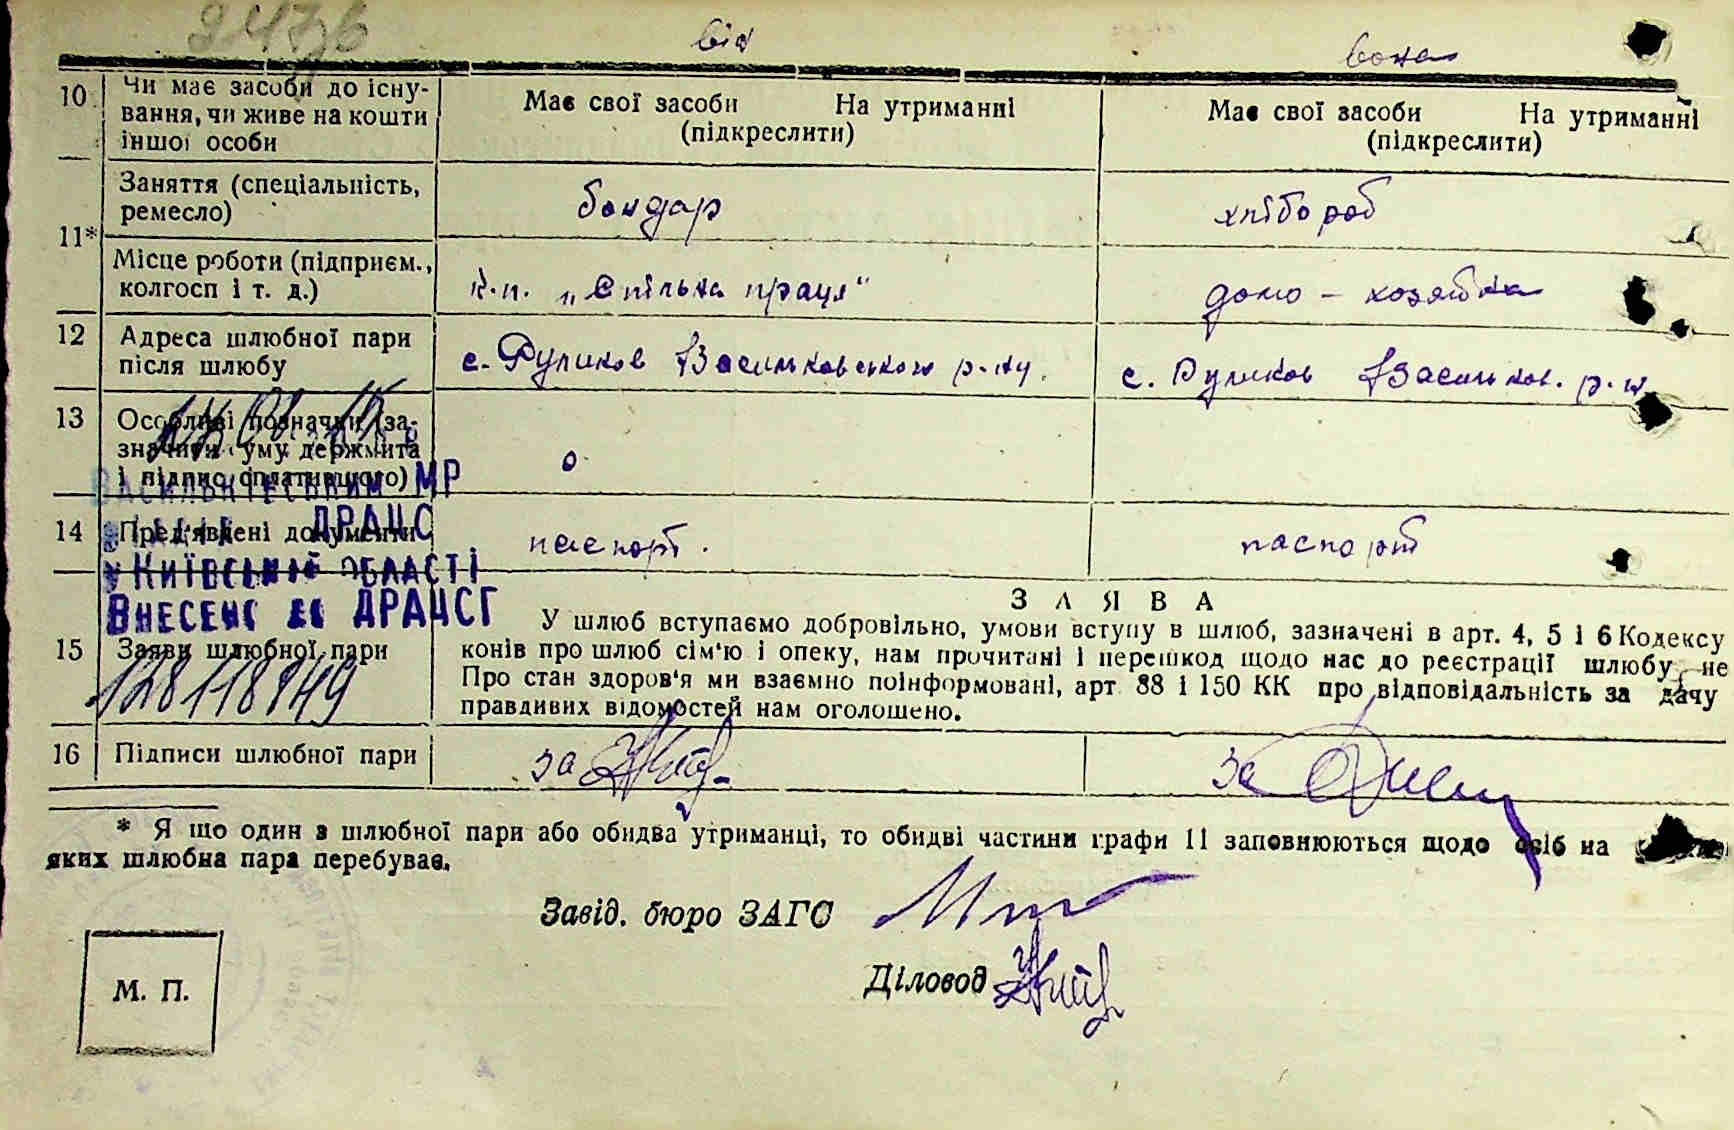 від вона
10 Чи має засоби до існу-
вання, чи живе на кошти
іншої особи
Має свої засоби На утриманні
(підкреслити)
Має свої засоби На утриманні
(підкреслити)
11*
Заняття (спеціальність,
ремесло)
бондар
хлібороб
Місце роботи (підприєм.,
колгосп і т. д.)
к.п. „Спільна праця"
домо - хозяйка
12 Адреса шлюбної пари
після шлюбу
с. Руликов Васильковського р-ну.
с. Руликов Васильков. р-н
13 Особливі позначки (за-
значити суму держмита
і підпис сплатившого)
0
Васильківським МР
ДРАЦС
у Київській області
Внесено до ДРАЦСГ
128118749
14 Пред'явлені документи
паспорт.
паспорт
15 Заяви шлюбної пари
ЗАЯВА
У шлюб вступаємо добровільно, умови вступу в шлюб, зазначені в арт. 4, 5 і 6 Кодексу
конів про шлюб сім'ю і опеку, нам прочитані і перешкод щодо нас до реєстрації шлюбу не
Про стан здоров'я ми взаємно поінформовані, арт 88 і 150 КК про відповідальність за дачу
правдивих відомостей нам оголошено.
16 Підписи шлюбної пари
за
за
* Я що один з шлюбної пари або обидва утриманці, то обидві частини графи 11 заповнюються щодо осіб на
яких шлюбна пара перебуває.
Завід. бюро ЗАГС
Діловод
М. П.